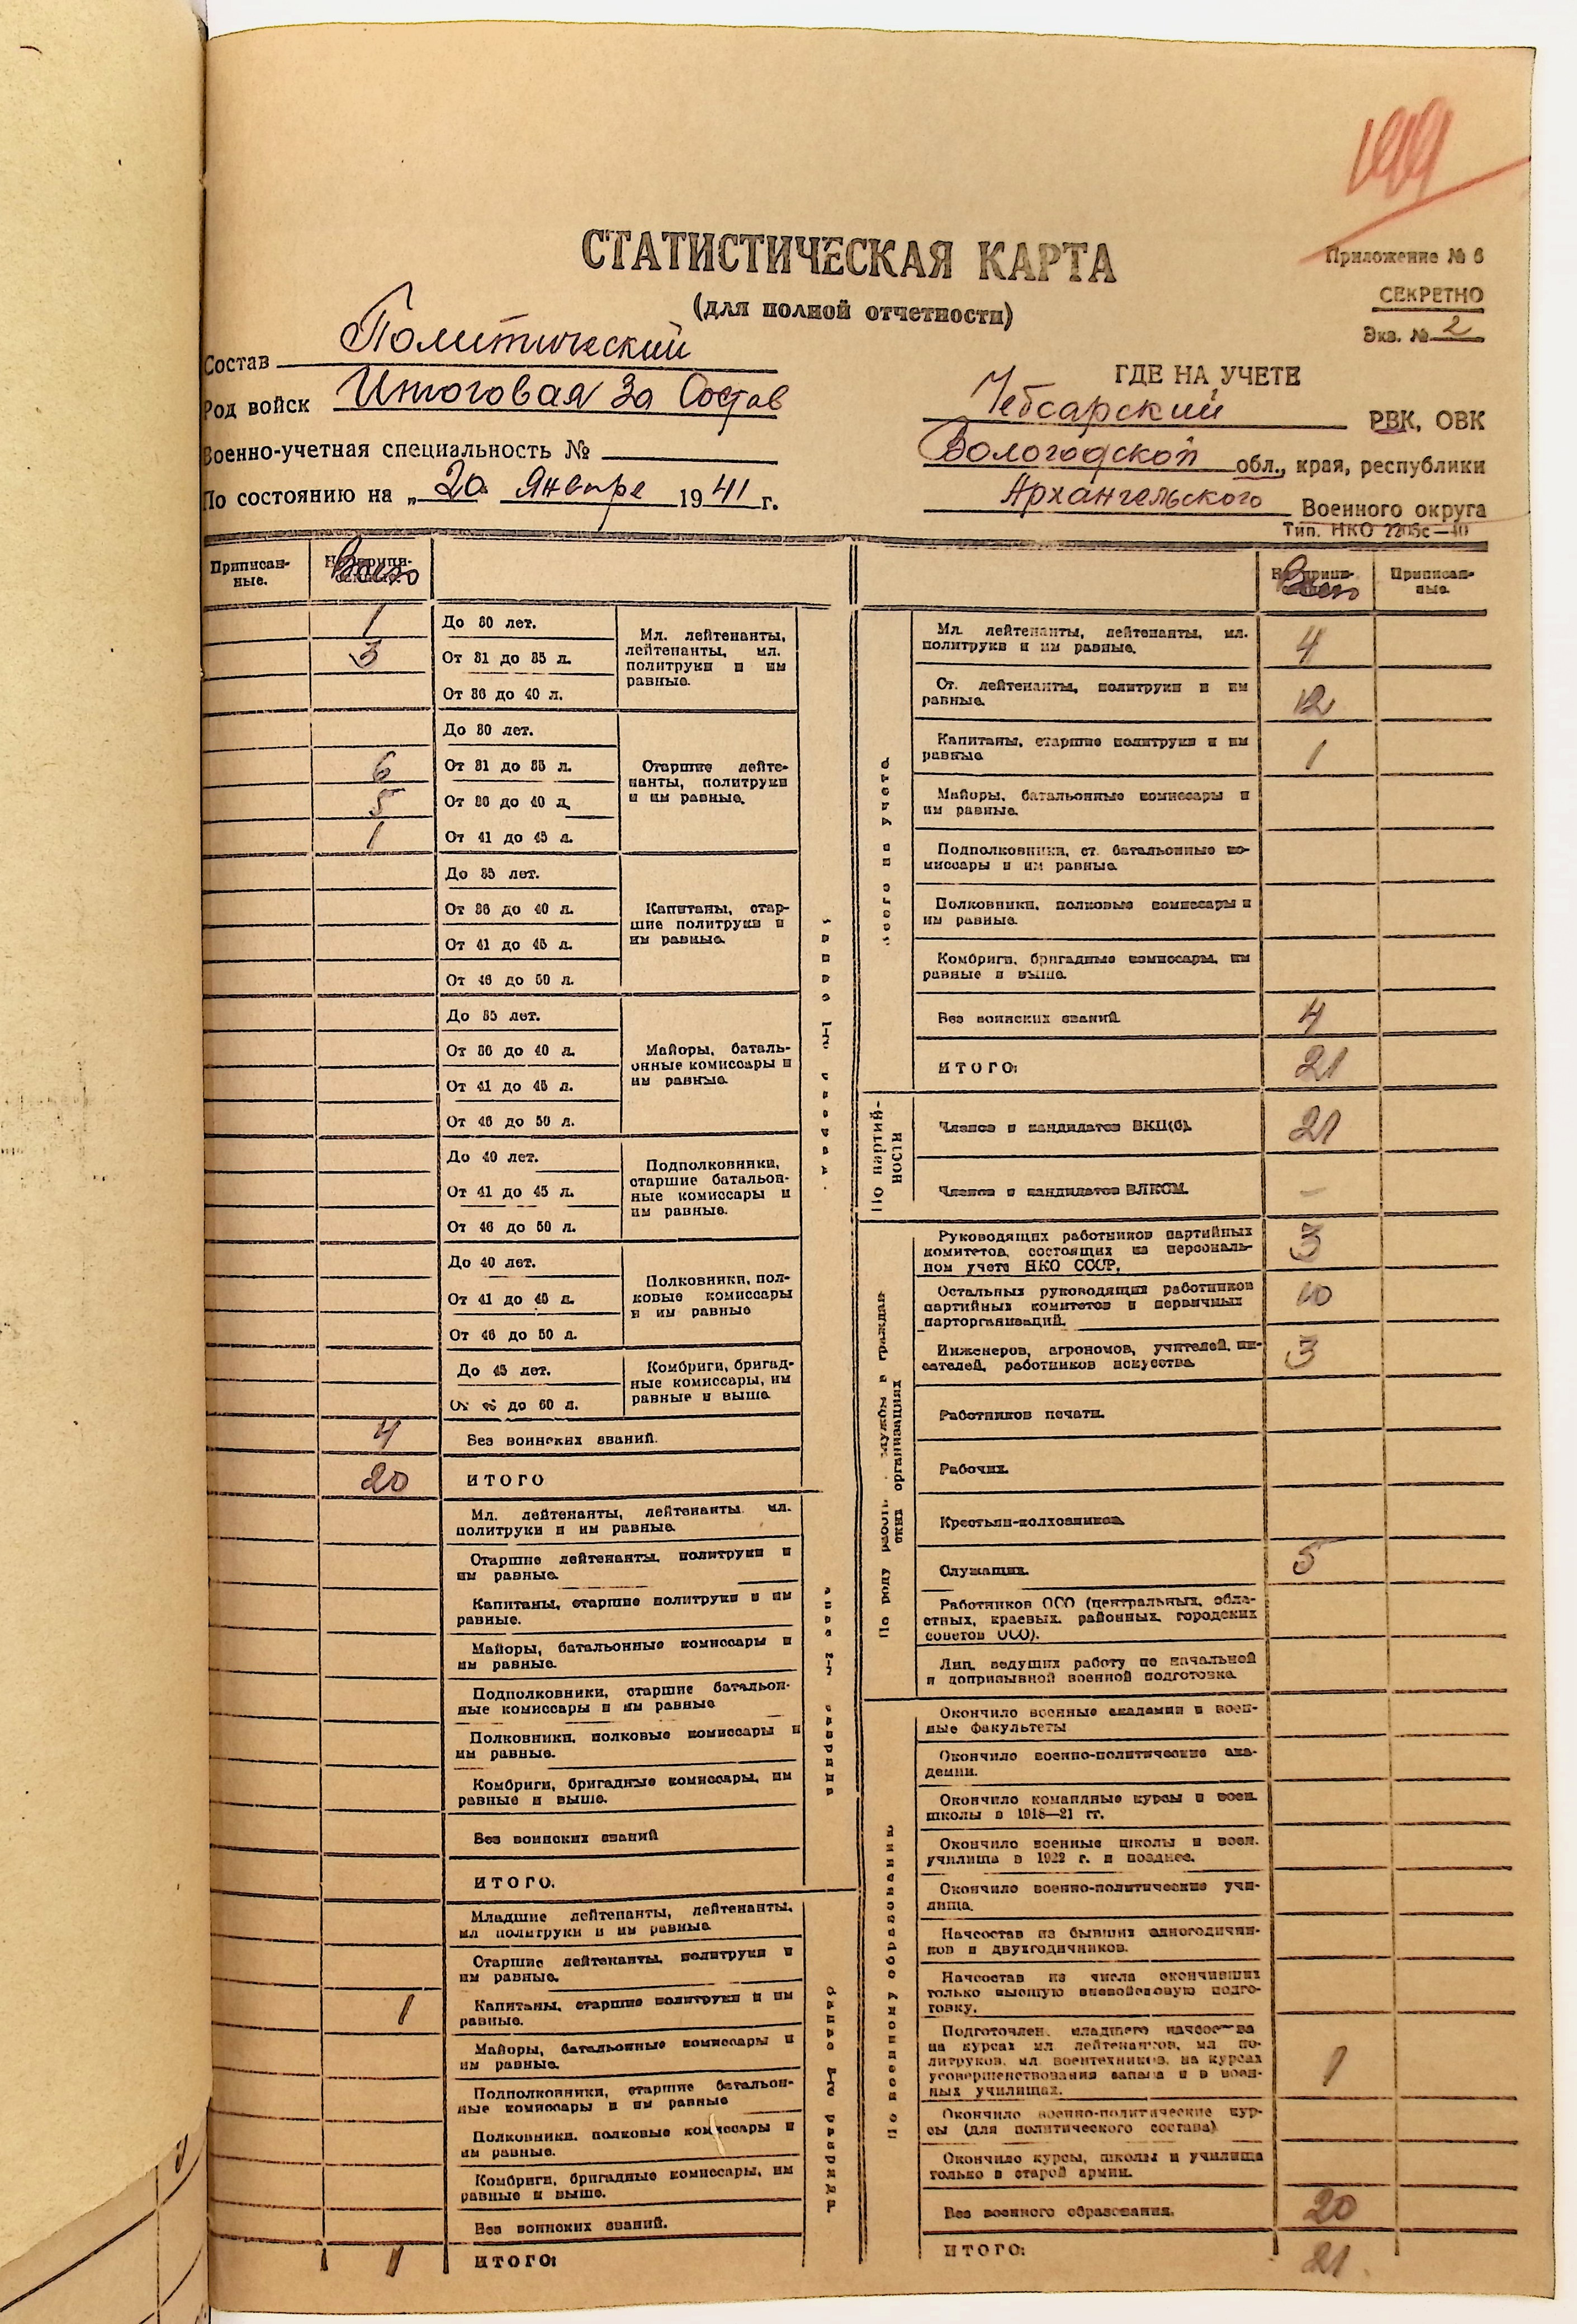 СТАТИСТИЧЕСКАЯ КАРТА
(для полной отчетности)
Приложение № 6
СЕКРЕТНО
Экз. № 2
Состав Политический
Род войск Итоговая За Состав
Военно-учетная специальность №
По состоянию на „20 Января 1941 г.
ГДЕ НА УЧЕТЕ
Чебсарский РВК, ОВК
Вологодской обл., края, республики
Архангельского Военного округа
Тип. НКО
Приписан-
ные.
Всего
1 До 30 лет.
3 От 31 до 35 л.
От 36 до 40 л.
Мл. лейтенанты,
лейтенанты, мл.
политруки и им
равные.
До 30 лет.
6 От 31 до 35 л.
5 От 36 до 40 л.
1 От 41 до 45 л.
Старшие лейте-
нанты, политруки
и им равные.
До 35 лет.
От 36 до 40 л.
От 41 до 45 л.
От 46 до 50 л.
Капитаны, стар-
шие политруки и
им равные.
До 35 лет.
От 36 до 40 л.
От 41 до 45 л.
От 46 до 50 л.
Майоры, баталь-
онные комиссары и
им равные.
До 40 лет.
От 41 до 45 л.
От 46 до 50 л.
Подполковники,
старшие батальон-
ные комиссары и
им равные.
До 40 лет.
От 41 до 45 л.
От 46 до 50 л.
Полковники, пол-
ковые комиссары
и им равные
До 45 лет.
до 60 л.
Комбриги, бригад-
ные комиссары, им
равные и выше.
4 Без воинских званий.
20 ИТОГО
Запас 1-го разряда
Мл. лейтенанты, лейтенанты, мл.
политруки и им равные.
Старшие лейтенанты, политруки и
им равные.
Капитаны, старшие политруки и им
равные.
Майоры, батальонные комиссары и
им равные.
Подполковники, старшие батальон-
ные комиссары и им равные
Полковники, полковые комиссары и
им равные.
Комбриги, бригадные комиссары, им
равные и выше.
Без воинских званий
ИТОГО.
Запас 2-го разряда
Младшие лейтенанты, лейтенанты,
мл политруки и им равные.
Старшие лейтенанты, политруки и
им равные.
1 Капитаны, старшие политруки и им
равные.
Майоры, батальонные комиссары и
им равные.
Подполковники, старшие батальон-
ные комиссары и им равные
Полковники, полковые комиссары и
им равные.
Комбриги, бригадные комиссары, им
равные и выше.
Без воинских званий.
1 ИТОГО:
разряда
Всего
Приписан-
ные.
Всего на учете
Мл. лейтенанты, лейтенанты, мл.
политруки и им равные. 4
Ст. лейтенанты, политруки и им
равные. 12
Капитаны, старшие политруки и им
равные 1
Майоры, батальонные комиссары и
им равные.
Подполковники, ст. батальонные ко-
миссары и им равные.
Полковники, полковые комиссары и
им равные.
Комбриги, бригадные комиссары, им
равные и выше.
Без воинских званий. 4
ИТОГО: 21
По партий-
ности
Членов и кандидатов ВКП(б). 21
Членов и кандидатов ВЛКСМ. –
По роду работы службы в граждан-
ских организациях
Руководящих работников партийных
комитетов, состоящих на персональ-
ном учете НКО СССР. 3
Остальных руководящих работников
партийных комитетов и первичных
парторганизаций. 10
Инженеров, агрономов, учителей, пи-
сателей, работников искусства 3
Работников печати.
Рабочих.
Крестьян-колхозников.
Служащих. 5
Работников ОСО (центральных, обла-
стных, краевых, районных, городских
советов ОСО).
Лиц, ведущих работу по начальной
и допризывной военной подготовке.
По военному образованию
Окончило военные академии и воен-
ные факультеты
Окончило военно-политические ака-
демии.
Окончило командные курсы и воен.
школы в 1918—21 гг.
Окончило военные школы и воен.
училища в 1922 г. и позднее.
Окончило военно-политические учи-
лища.
Начсостав из бывших одногодични-
ков и двухгодичников.
Начсостав из числа окончивших
только высшую вневойсковую подго-
товку.
Подготовлен. младшего начсостава
на курсах мл лейтенантов, мл по-
литруков, мл. воентехников, на курсах
усовершенствования запаса и в воен-
ных училищах. 1
Окончило военно-политические кур-
сы (для политического состава)
Окончило курсы, школы и училища
только в старой армии.
Без военного образования. 20
ИТОГО: 21